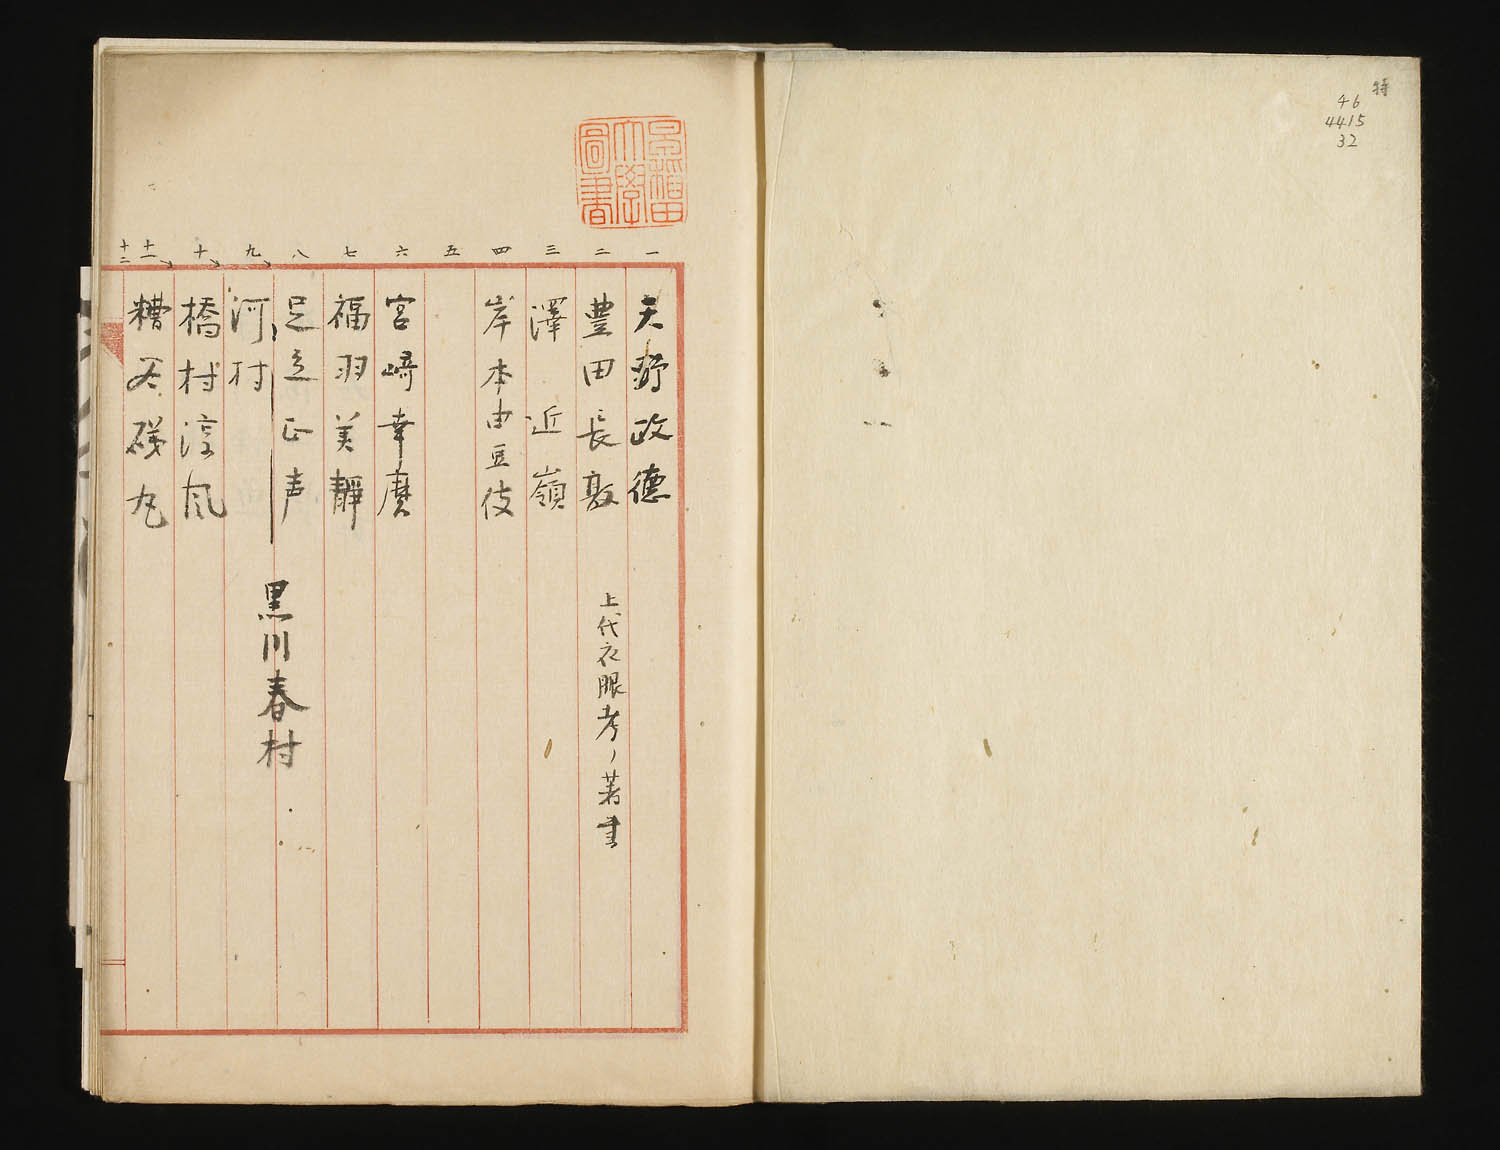 特
46
4415
32
早稲田
大學
圖書
一 二 三 四 五 六 七 八 九 十 十一 十二
天野政德
豊田長敦 上代衣服考ノ著書
澤近嶺
岸本由豆伎
宮崎幸麿
福羽美靜
足立正声
河村
黒川春村
橋村淳風
糟谷磯丸